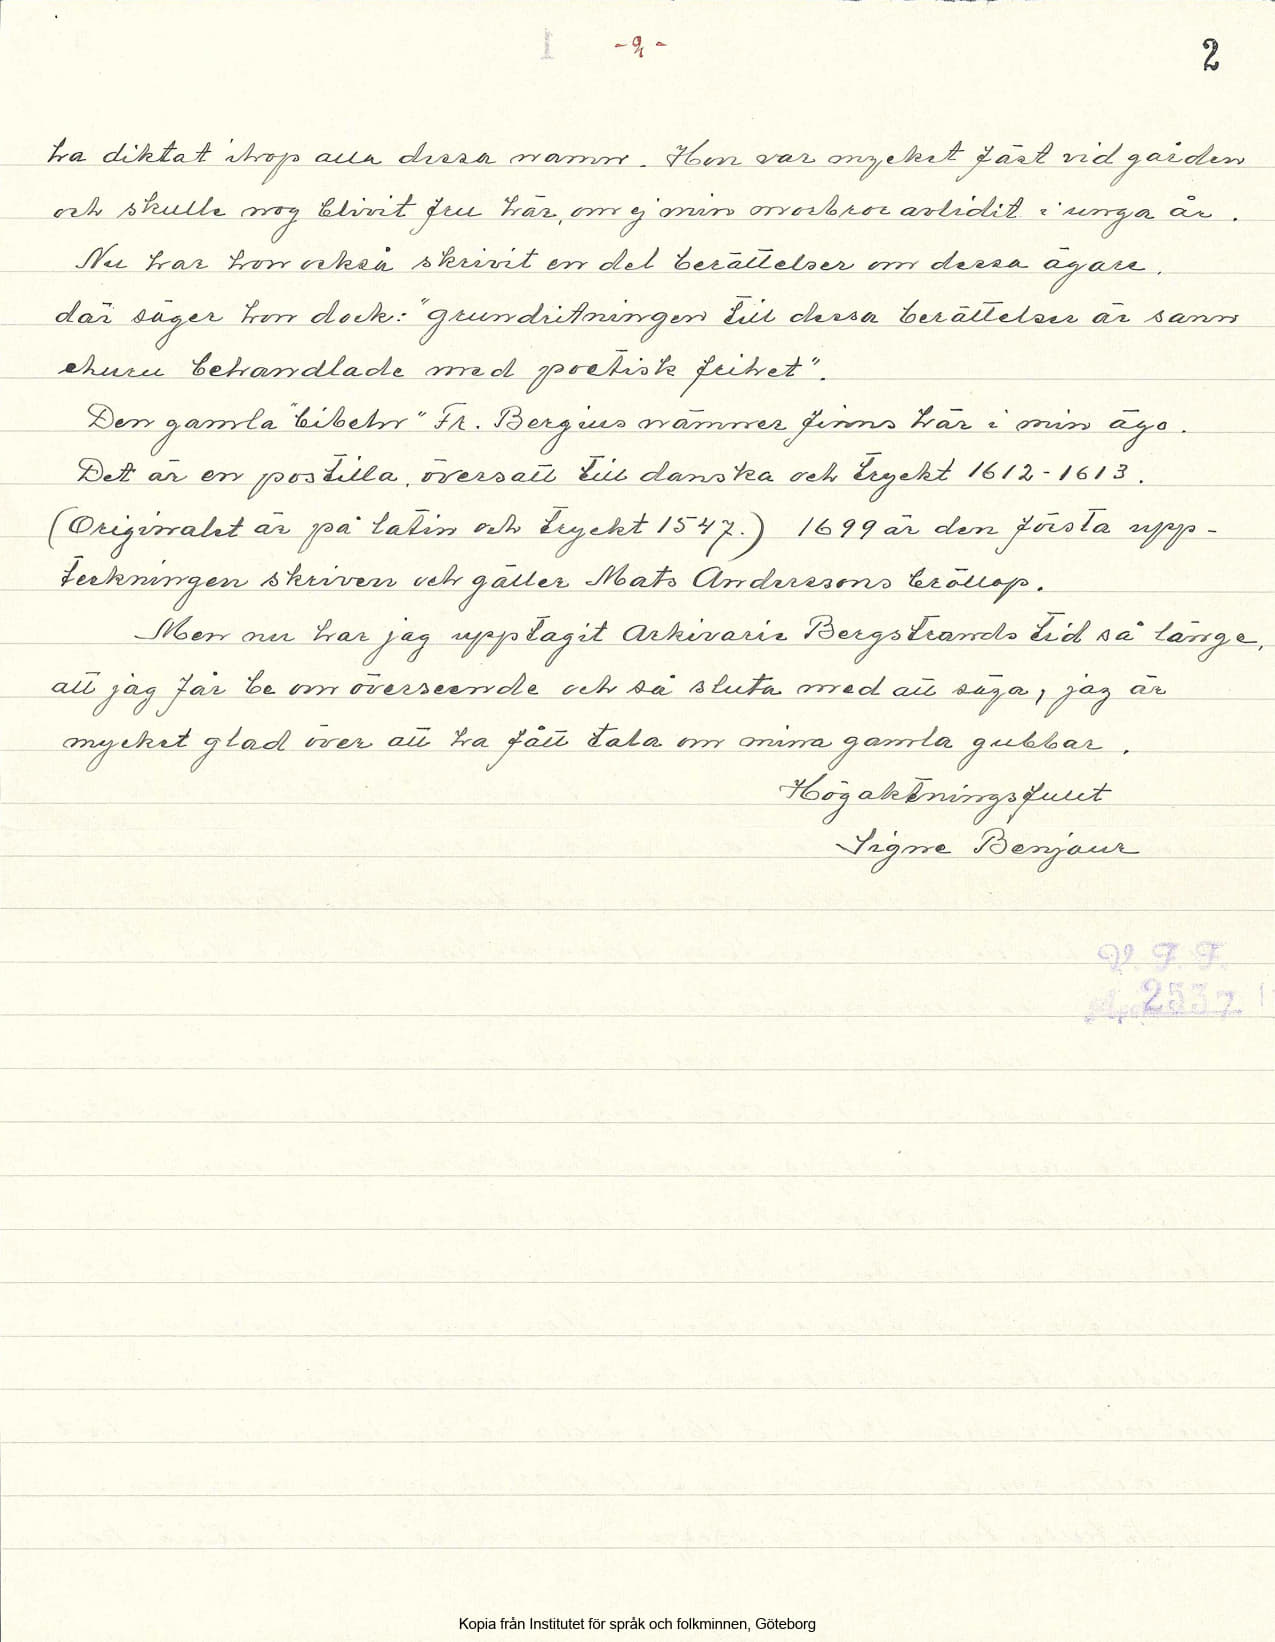 - 9 -
2
ha diktat ihop alla dessa namn. Hon var mycket fäst vid gården
och skulle nog blivit fru här, om ej min morbror avlidit i unga år.
Nu har hon också skrivit en del berättelser om dessa ägare,
där säger hon dock: "grundritningen till dessa berättelser är sann
ehuru behandlade med poetisk frihet".
Den gamla "bibeln" Fr. Bergius nämner finns här i min ägo.
Det är en postilla, översatt till danska och tryckt 1612-1613.
(Originalet är på latin och tryckt 1547.) 1699 är den första upp-
teckningen skriven och gäller Mats Anderssons bröllop.
Men nu har jag upptagit Arkivarie Bergstrands tid så länge,
att jag får be om överseende och så sluta med att säga, jag är
mycket glad över att ha fått tala om mina gamla gubbar.
Högaktningsfullt
Signe Benjour
V. F. F.
2537
Kopia från Institutet för språk och folkminnen, Göteborg